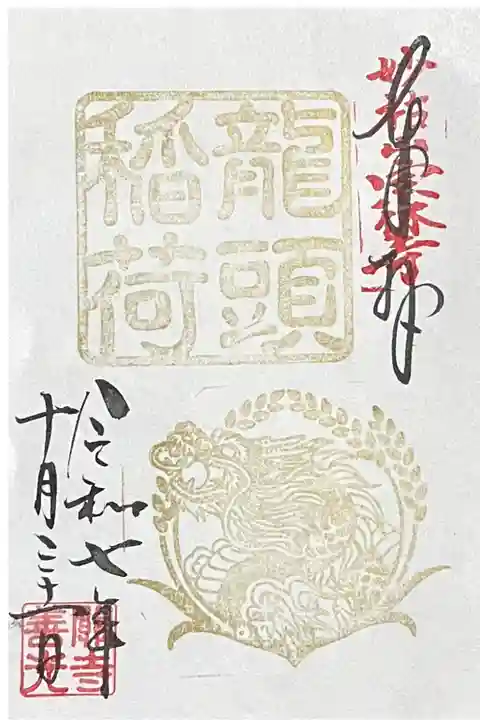 奉拝
龍頭
稲荷
令和七年
十月二十一日